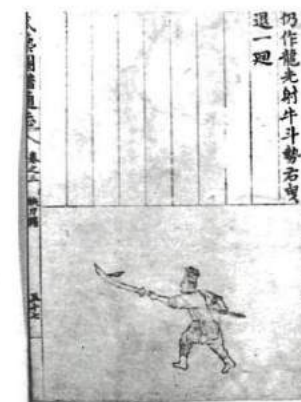 仍作龍光射牛斗勢右曳
退一廻
武藝圖譜通志
卷之三